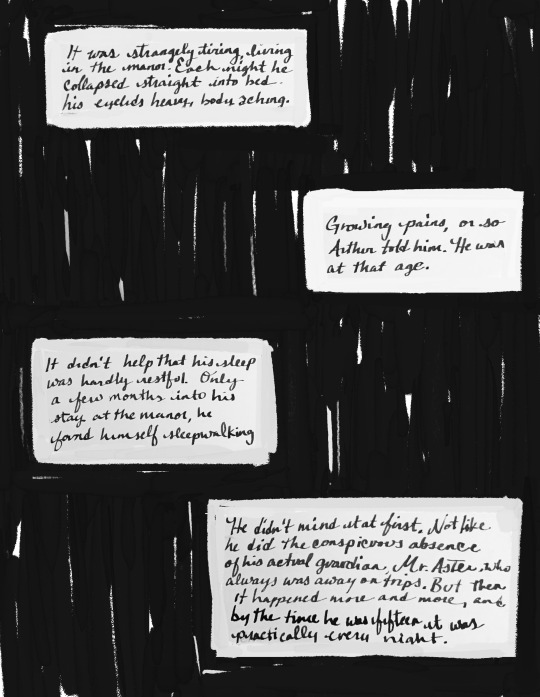 It was strangely tiring, living
in the manor. Each night he
collapsed straight into bed.
his eyelids heavy, body aching.
Growing pains, or so
Arthur told him. He was
at that age.
It didn't help that his sleep
was hardly restful. Only
a few months into his
stay at the manor, he
found himself sleepwalking
He didn't mind it at first. Not like
he did the conspicuous absence
of his actual guardian, Mr. Aster, who
always was away on trips. But then
it happened more and more, and
by the time he was fifteen it was
practically every night.